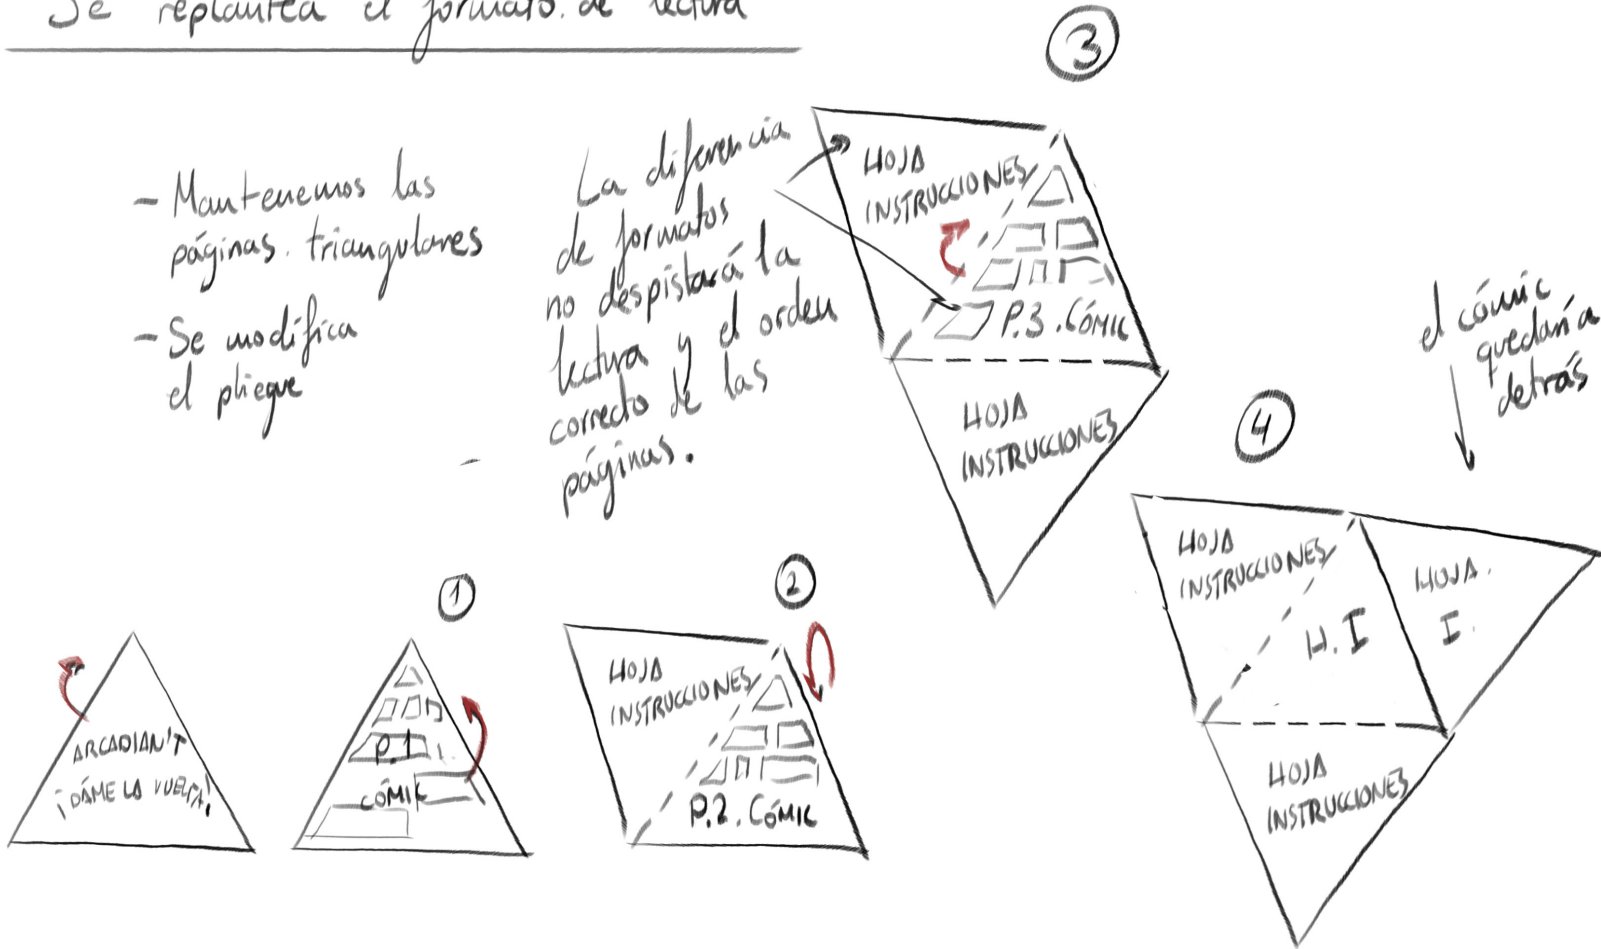 Se replantea el formato. de lectura
- Mantenemos las
páginas. triangulares
- Se modifica
el pliegue
La diferencia
de formatos
no despistará la
lectura y el orden
correcto de las
páginas.
3
HOJA
INSTRUCCIONES
P.3. CÓMIC
HOJA
INSTRUCCIONES
el cómic
quedaría
detrás
4
HOJA
INSTRUCCIONES
H. I
HOJA.
I.
HOJA
INSTRUCCIONES
ARCADIAN'T
¡DÁME LA VUELTA!
1
P.1
CÓMIC
2
HOJA
INSTRUCCIONES
P.2. CÓMIC